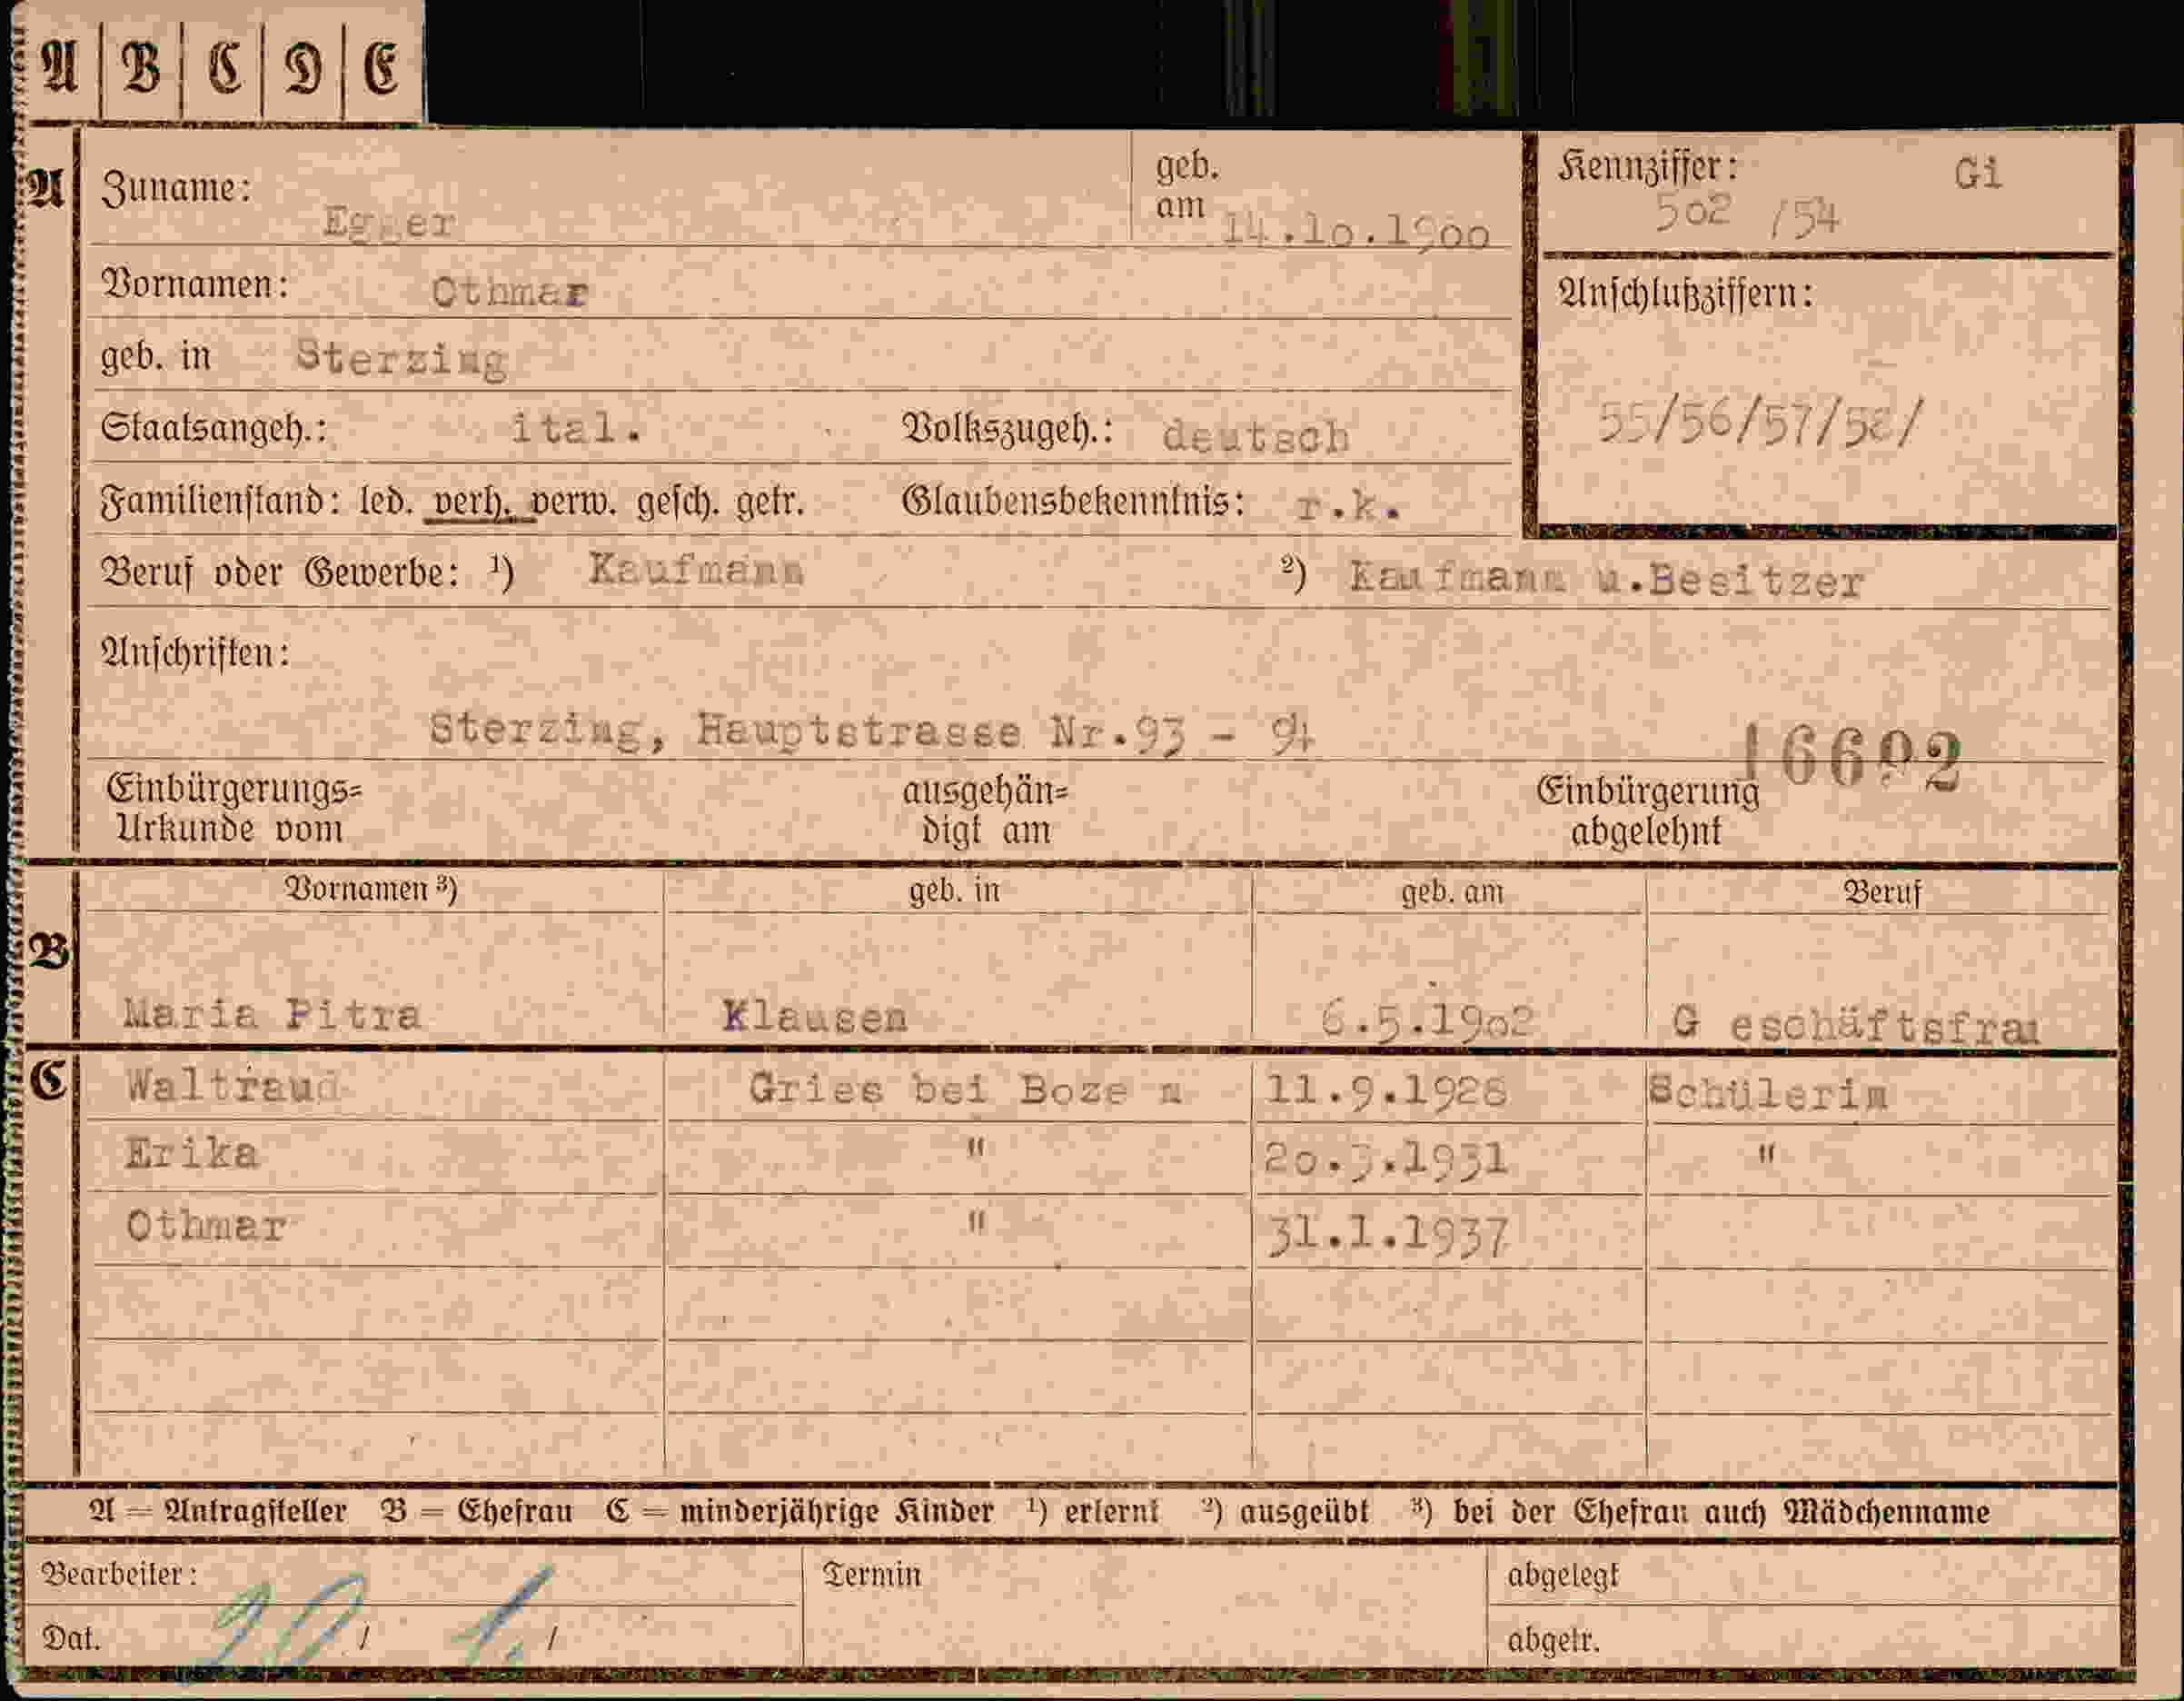 A B C D E
A Zuname: Egger geb. am 14.10.1900 Kennziffer: Gi 502 /54
Vornamen: Othmar Anschlußziffern:
geb. in Sterzing
Staatsangeh.: ital. Volkszugeh.: deutsch 55/56/57/58/
Familienstand: led. verh. verw. gesch. getr. Glaubensbekenntnis: r.k.
Beruf oder Gewerbe: ¹) Kaufmann ²) Kaufmann u.Besitzer
Anschriften:
Sterzing, Hauptstrasse Nr.93 - 94
16692
Einbürgerungs= ausgehän= Einbürgerung
Urkunde vom digt am abgelehnt
Vornamen ³) geb. in geb. am Beruf
B
Maria Pitra Klausen 6.5.1902 G eschäftsfrau
C Waltraud Gries bei Boze n 11.9.1928 Schülerin
Erika " 20.3.1931 "
Othmar " 31.1.1937
A = Antragsteller B = Ehefrau C = minderjährige Kinder ¹) erlernt ²) ausgeübt ³) bei der Ehefrau auch Mädchenname
Bearbeiter: Termin abgelegt
Dat. 20 / 1. / abgetr.